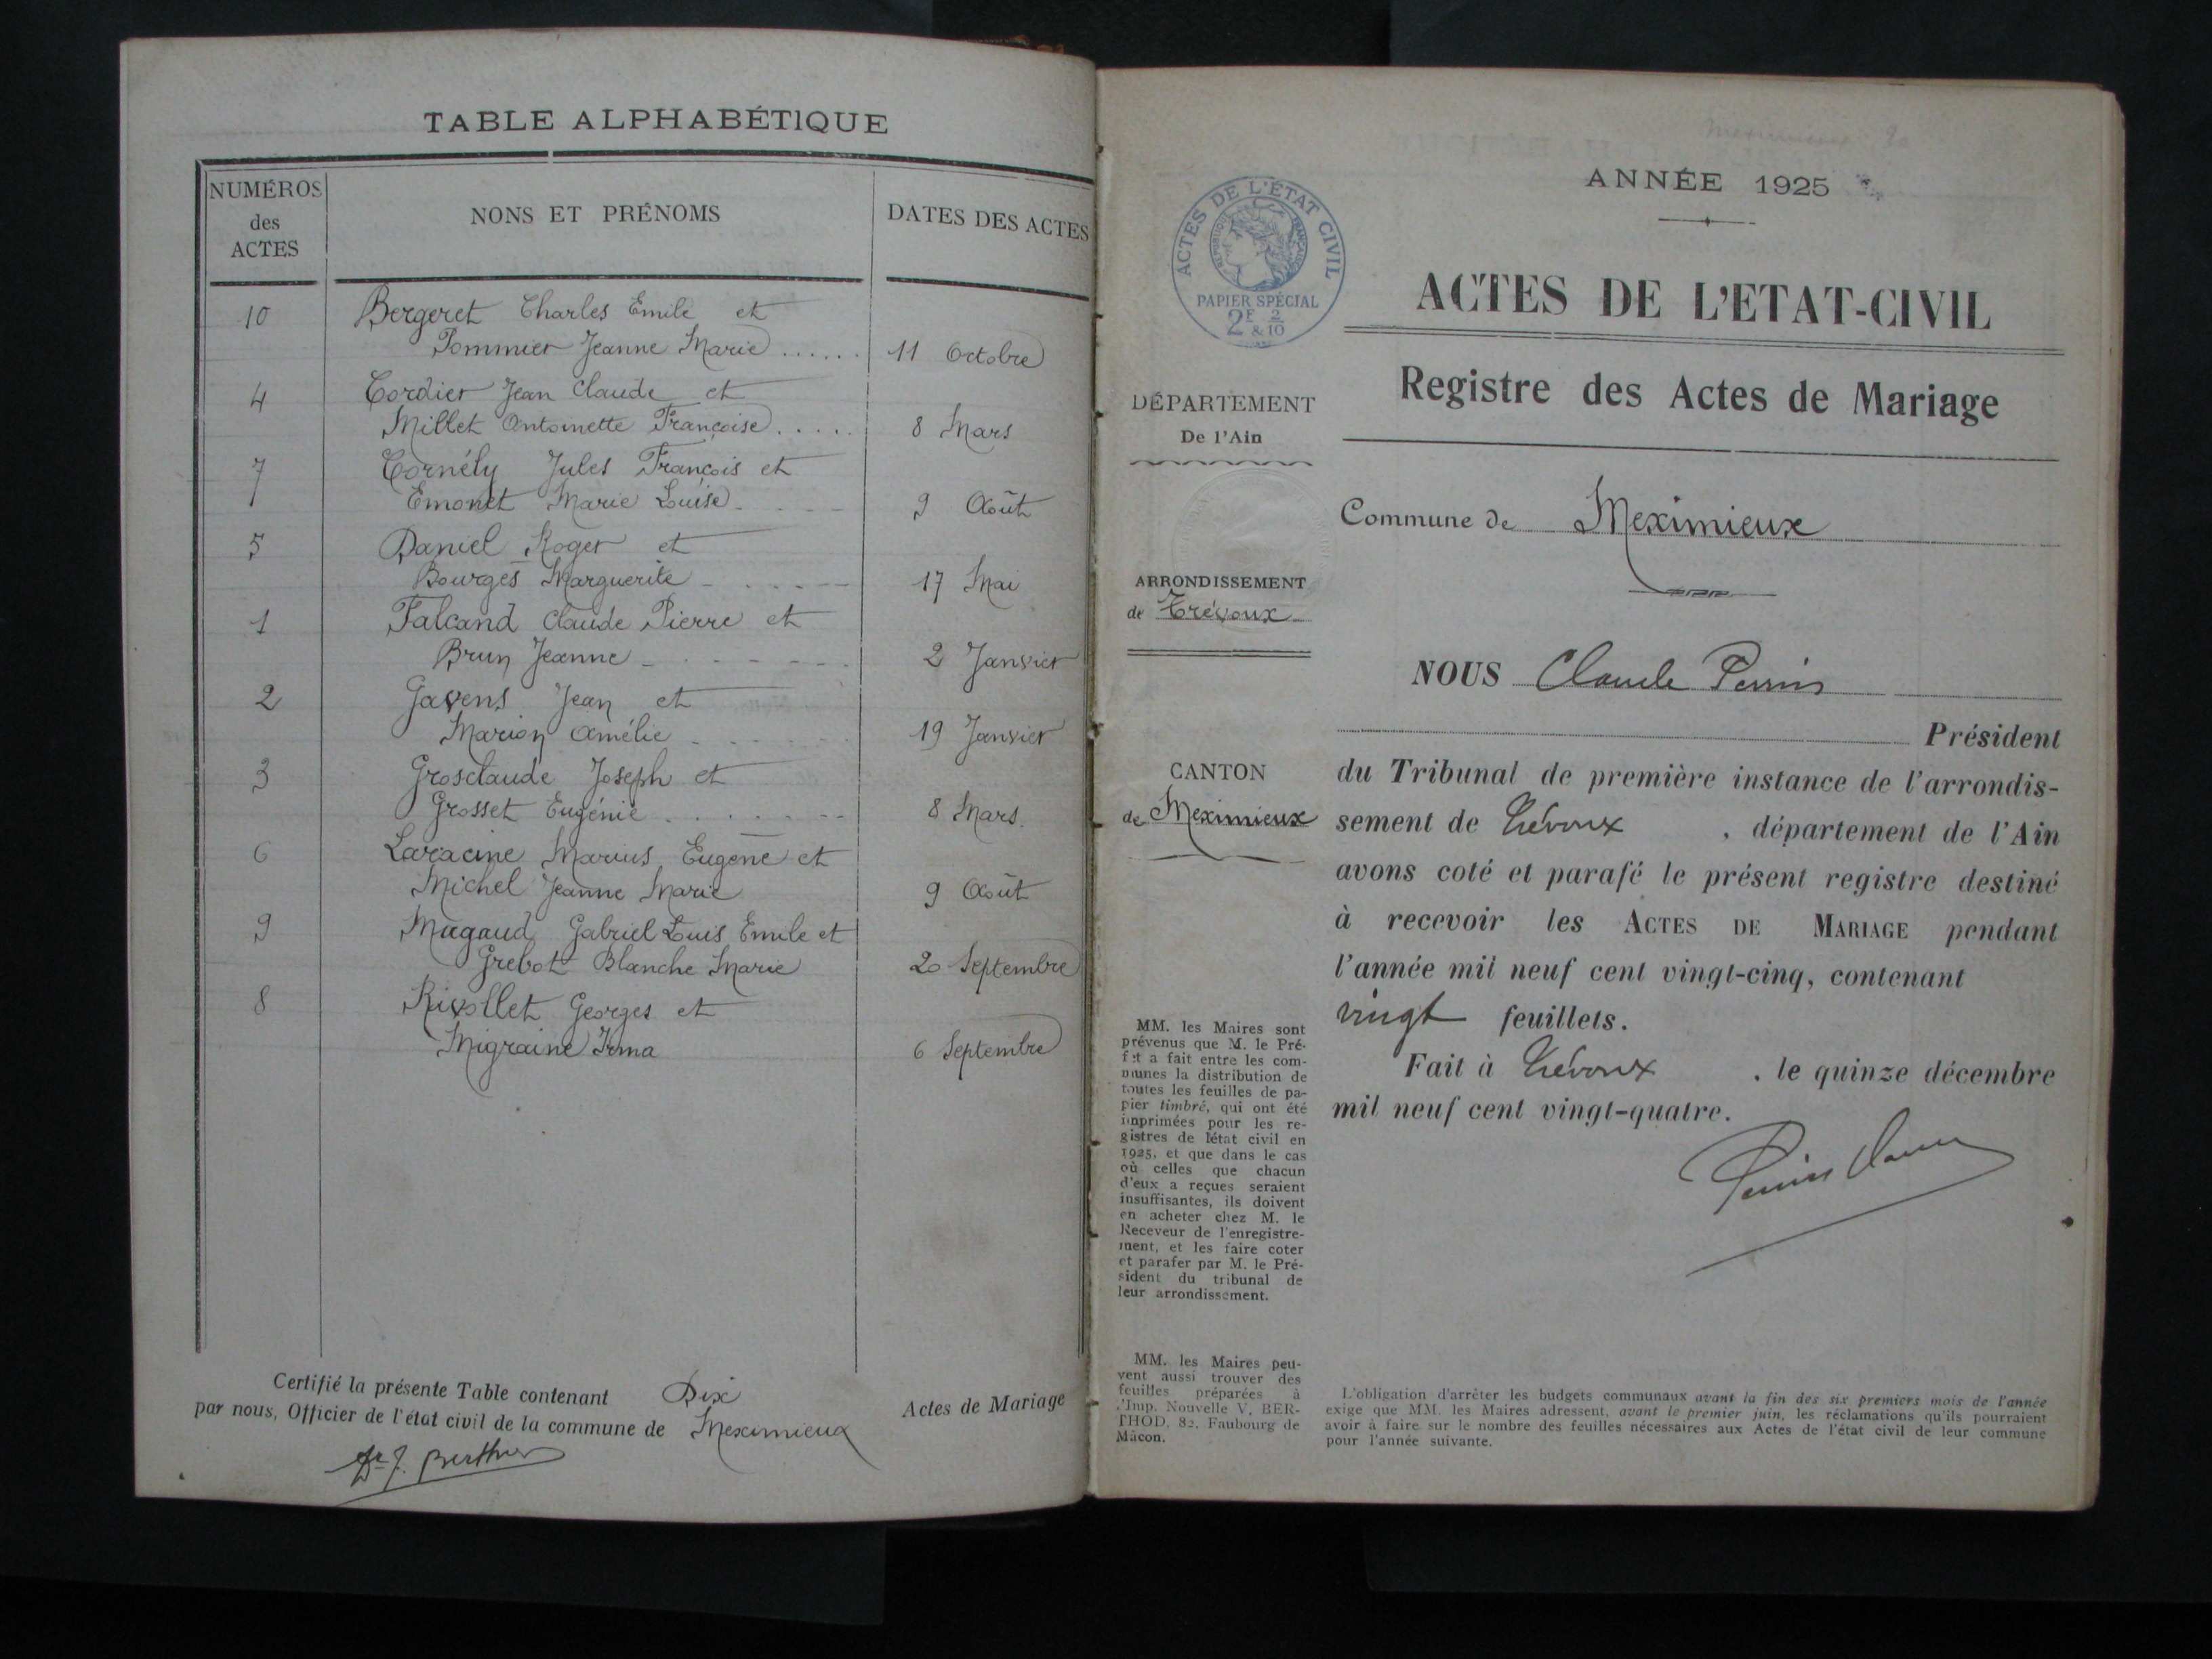 TABLE ALPHABÉTIQUE
NUMÉROS
des
ACTES
NONS ET PRÉNOMS
DATES DES ACTES
10 Bergeret Charles Emile et
Pommier Jeanne Marie ...... 11 Octobre
4 Cordier Jean Claude et
Millet Antoinette Françoise ..... 8 Mars
7 Cornély Jules François et
Emonet Marie Louise 9 Août
5 Daniel Roger et
Bourges Marguerite 17 Mai
1 Falcand Claude Pierre et
Brun Jeanne 2 Janvier
2 Gavens Jean et
Marion Amélie 19 Janvier
3 Grosclaude Joseph et
Grosset Eugénie 8 Mars.
6 Laracine Marius Eugène et
Michel Jeanne Marie 9 Août
9 Magaud Gabriel Louis Emile et
Grebot Blanche Marie 20 Septembre
8 Rivollet Georges et
Migraine Irma 6 Septembre
Certifié la présente Table contenant Dix Actes de Mariage
par nous, Officier de l'état civil de la commune de Meximieux
Dr J. Berthier
ANNÉE 1925
ACTES DE L'ÉTAT CIVIL
RÉPUBLIQUE FRANÇAISE
PAPIER SPÉCIAL
2F & 2/10
ACTES DE L'ETAT-CIVIL
Registre des Actes de Mariage
DÉPARTEMENT
De l'Ain
Commune de Meximieux
ARRONDISSEMENT
de Trévoux
CANTON
de Meximieux
NOUS Claude Perrin
Président
du Tribunal de première instance de l'arrondis-
sement de Trévoux, département de l'Ain
avons coté et parafé le présent registre destiné
à recevoir les ACTES DE MARIAGE pendant
l'année mil neuf cent vingt-cinq, contenant
vingt feuillets.
Fait à Trévoux, le quinze décembre
mil neuf cent vingt-quatre.
Perrin Claude
MM. les Maires sont
prévenus que M. le Pré-
fet a fait entre les com-
munes la distribution de
toutes les feuilles de pa-
pier timbré, qui ont été
imprimées pour les re-
gistres de létat civil en
1925, et que dans le cas
où celles que chacun
d'eux a reçues seraient
insuffisantes, ils doivent
en acheter chez M. le
Receveur de l'enregistre-
ment, et les faire coter
et parafer par M. le Pré-
sident du tribunal de
leur arrondissement.
MM. les Maires peu-
vent aussi trouver des
feuilles préparées à
l'Imp. Nouvelle V. BER-
THOD, 82, Faubourg de
Mâcon.
L'obligation d'arrêter les budgets communaux avant la fin des six premiers mois de l'année
exige que MM. les Maires adressent, avant le premier juin, les réclamations qu'ils pourraient
avoir à faire sur le nombre des feuilles nécessaires aux Actes de l'état civil de leur commune
pour l'année suivante.